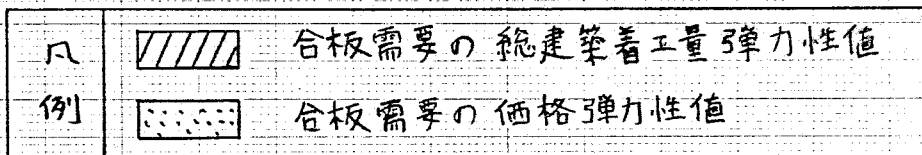 凡例
合板需要の 総建築着工量弾力性値
合板需要の 価格弾力性値